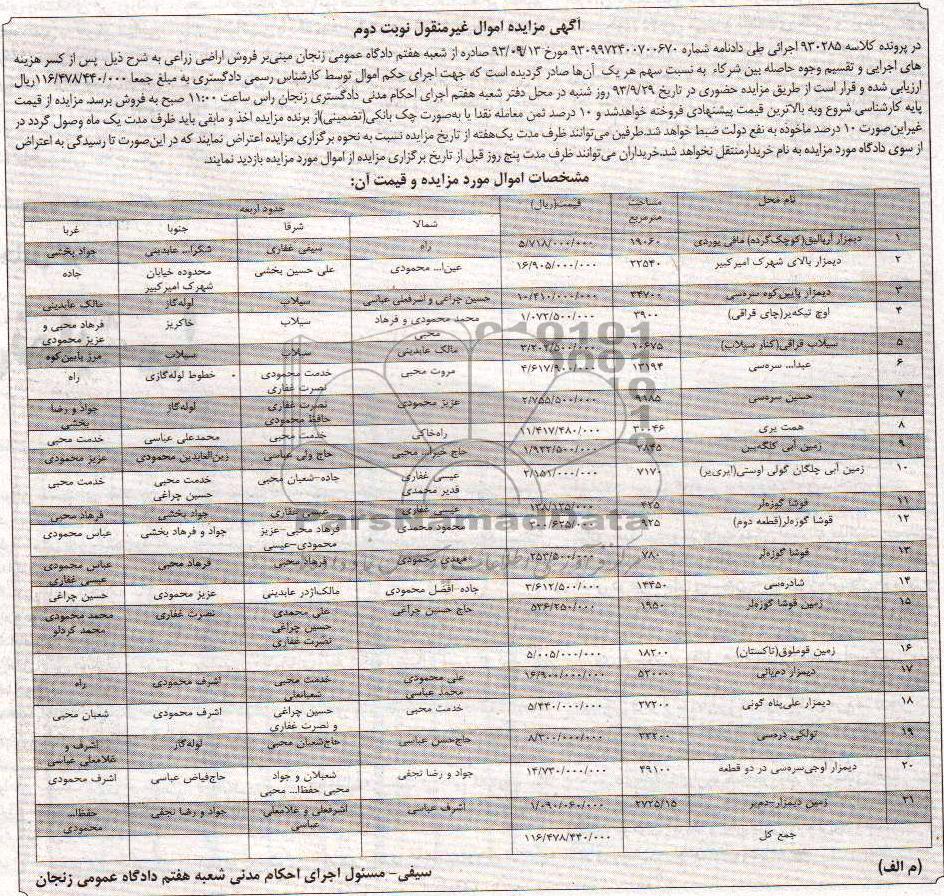 آگهی مزایده اموال غیرمنقول نوبت دوم
در پرونده کلاسه ۹۳۰۲۸۵ اجرائی طی دادنامه شماره ۹۳۰۹۹۷۲۴۰۰۷۰۰۶۷۰ مورخ ۹۳/۰۹/۱۳ صادره از شعبه هفتم دادگاه عمومی زنجان مبنی‌بر فروش اراضی زراعی به شرح ذیل پس از کسر هزینه
های اجرایی و تقسیم وجوه حاصله بین شرکاء به نسبت سهم هر یک آن‌ها صادر گردیده است که جهت اجرای حکم اموال توسط کارشناس رسمی دادگستری به مبلغ جمعا ۱۱۶/۴۷۸/۴۴۰/۰۰۰ریال
ارزیابی شده و قرار است از طریق مزایده حضوری در تاریخ ۹۳/۹/۲۹ روز شنبه در محل دفتر شعبه هفتم اجرای احکام مدنی دادگستری زنجان راس ساعت ۱۱:۰۰ صبح به فروش برسد. مزایده از قیمت
پایه کارشناسی شروع وبه بالاترین قیمت پیشنهادی فروخته خواهدشد و ۱۰ درصد ثمن معامله نقدا یا به‌صورت چک بانکی(تضمینی)از برنده مزایده اخذ و مابقی باید ظرف مدت یک ماه وصول گردد در
غیراین‌صورت ۱۰ درصد ماخوذه به نفع دولت ضبط خواهد شد.طرفین می‌توانند ظرف مدت یک‌هفته از تاریخ مزایده نسبت به نحوه برگزاری مزایده اعتراض نمایند که در این‌صورت تا رسیدگی به اعتراض
از سوی دادگاه مورد مزایده به نام خریدارمنتقل نخواهد شد.خریداران می‌توانند ظرف مدت پنج روز قبل از تاریخ برگزاری مزایده از اموال مورد مزایده بازدید نمایند.
مشخصات اموال مورد مزایده و قیمت آن:
نام محل مساحت مترمربع قیمت(ریال) حدود اربعه
شمالا شرقا جنوبا غربا
۱ دیمزار آریالیق(کوچک‌گرده) مافی یوردی ۱۹۰۶۰ ۵/۷۱۸/۰۰۰/۰۰۰ راه سیفی غفاری شکرا... عابدینی جواد بخشی
۲ دیمزار بالای شهرک امیرکبیر ۲۲۵۴۰ ۱۶/۹۰۵/۰۰۰/۰۰۰ عین‌ا... محمودی علی حسین بخشی محدوده خیابان شهرک امیرکبیر جاده
۳ دیمزار پایین‌کوه سره‌سی ۳۴۷۰۰ ۱۰/۴۱۰/۰۰۰/۰۰۰ حسین چراغی و اشرفعلی عباسی سیلاب لوله‌گاز مالک عابدینی
۴ اوچ تیکه‌یر(چای قراقی) ۳۹۰۰ ۱/۰۷۲/۵۰۰/۰۰۰ محمد محمودی و فرهاد محبی سیلاب خاکریز فرهاد محبی و عزیز محمودی
۵ سیلاب قراقی(کنار سیلاب) ۱۰۶۷۵ ۳/۲۰۲/۵۰۰/۰۰۰ مالک عابدینی سیلاب سیلاب مرز پایین‌کوه
۶ عبدا... سره‌سی ۱۳۱۹۴ ۴/۶۱۷/۹۰۰/۰۰۰ مروت محبی خدمت محمودی نصرت غفاری خطوط لوله‌گازی راه
۷ حسین سره‌سی ۹۱۸۵ ۲/۷۵۵/۵۰۰/۰۰۰ عزیز محمودی نصرت غفاری حافظ محمودی لوله‌گاز جواد و رضا بخشی
۸ همت یری ۳۰۰۴۶ ۱۱/۴۱۷/۴۸۰/۰۰۰ راه‌خاکی خدمت محبی محمدعلی عباسی خدمت محبی
۹ زمین آبی کلگه‌بین ۱/۹۲۲/۵۰۰/۰۰۰ حاج خیرا... محبی حاج ولی عباسی زین‌العابدین محمودی عزیز محمودی
۱۰ زمین آبی چلگان گولی اوستی(ایری‌یر) ۷۱۷۰ ۲/۱۵۱/۰۰۰/۰۰۰ عیسی غفاری قدیر محمدی جاده-شعبان محبی خدمت محبی حسین چراغی خدمت محبی
۱۱ قوشا گوزه‌لر ۴۲۵ ۱۳۸/۱۲۵/۰۰۰ عیسی غفاری عیسی غفاری جواد بخشی فرهاد محبی
۱۲ قوشا گوزه‌لر(قطعه دوم) ۹۲۵ ۳۰۰/۶۲۵/۰۰۰ محمود محمدی فرهاد محبی-عزیز محمودی-عیسی جواد و فرهاد بخشی عباس محمودی
۱۳ قوشا گوزه‌لر ۷۸۰ ۲۵۳/۵۰۰/۰۰۰ مهدی محمودی فرهاد محبی فرهاد محبی عباس محمودی عیسی غفاری
۱۴ شادره‌سی ۱۴۴۵۰ ۳/۶۱۲/۵۰۰/۰۰۰ جاده-افضل محمودی مالک‌اژدر عابدینی عزیز محمودی حسین چراغی
۱۵ زمین قوشا گوزه‌لر ۱۹۵۰ ۵۳۶/۲۵۰/۰۰۰ حاج حسین چراغی علی محمدی حسین چراغی نصرت غفاری نصرت غفاری محمد محمودی محمد کردلو
۱۶ زمین قوملوق(تاکستان) ۱۸۲۰۰ ۵/۰۰۵/۰۰۰/۰۰۰
۱۷ دیمزار دمیالی ۵۲۰۰۰ ۱۶/۹۰۰/۰۰۰/۰۰۰ علی محمودی محمد عباسی خدمت محبی شعبانعلی اشرف محمودی راه
۱۸ دیمزار علی‌پناه گونی ۲۷۲۰۰ ۵/۴۴۰/۰۰۰/۰۰۰ خدمت محبی حسین چراغی و نصرت غفاری اشرف محمودی شعبان محبی
۱۹ تولکی دره‌سی ۳۳۲۰۰ ۸/۳۰۰/۰۰۰/۰۰۰ حاج‌حسن عباسی حاج‌شعبان محبی لوله‌گاز اشرف و غلامعلی عباسی
۲۰ دیمزار اوجی‌سره‌سی در دو قطعه ۴۹۱۰۰ ۱۴/۷۳۰/۰۰۰/۰۰۰ جواد و رضا نجفی شعبلان و جواد محبی حفظا... محبی حاج‌فیاض عباسی اشرف محمودی
۲۱ زمین دیمزار-دمیر ۲۷۲۵/۱۵ ۱/۰۹۰/۰۶۰/۰۰۰ اشرف عباسی اشرفعلی و غلامعلی عباسی جواد و رضا نجفی حفظا... محمودی
جمع کل ۱۱۶/۴۷۸/۴۴۰/۰۰۰
(م الف) سیفی- مسئول اجرای احکام مدنی شعبه هفتم دادگاه عمومی زنجان